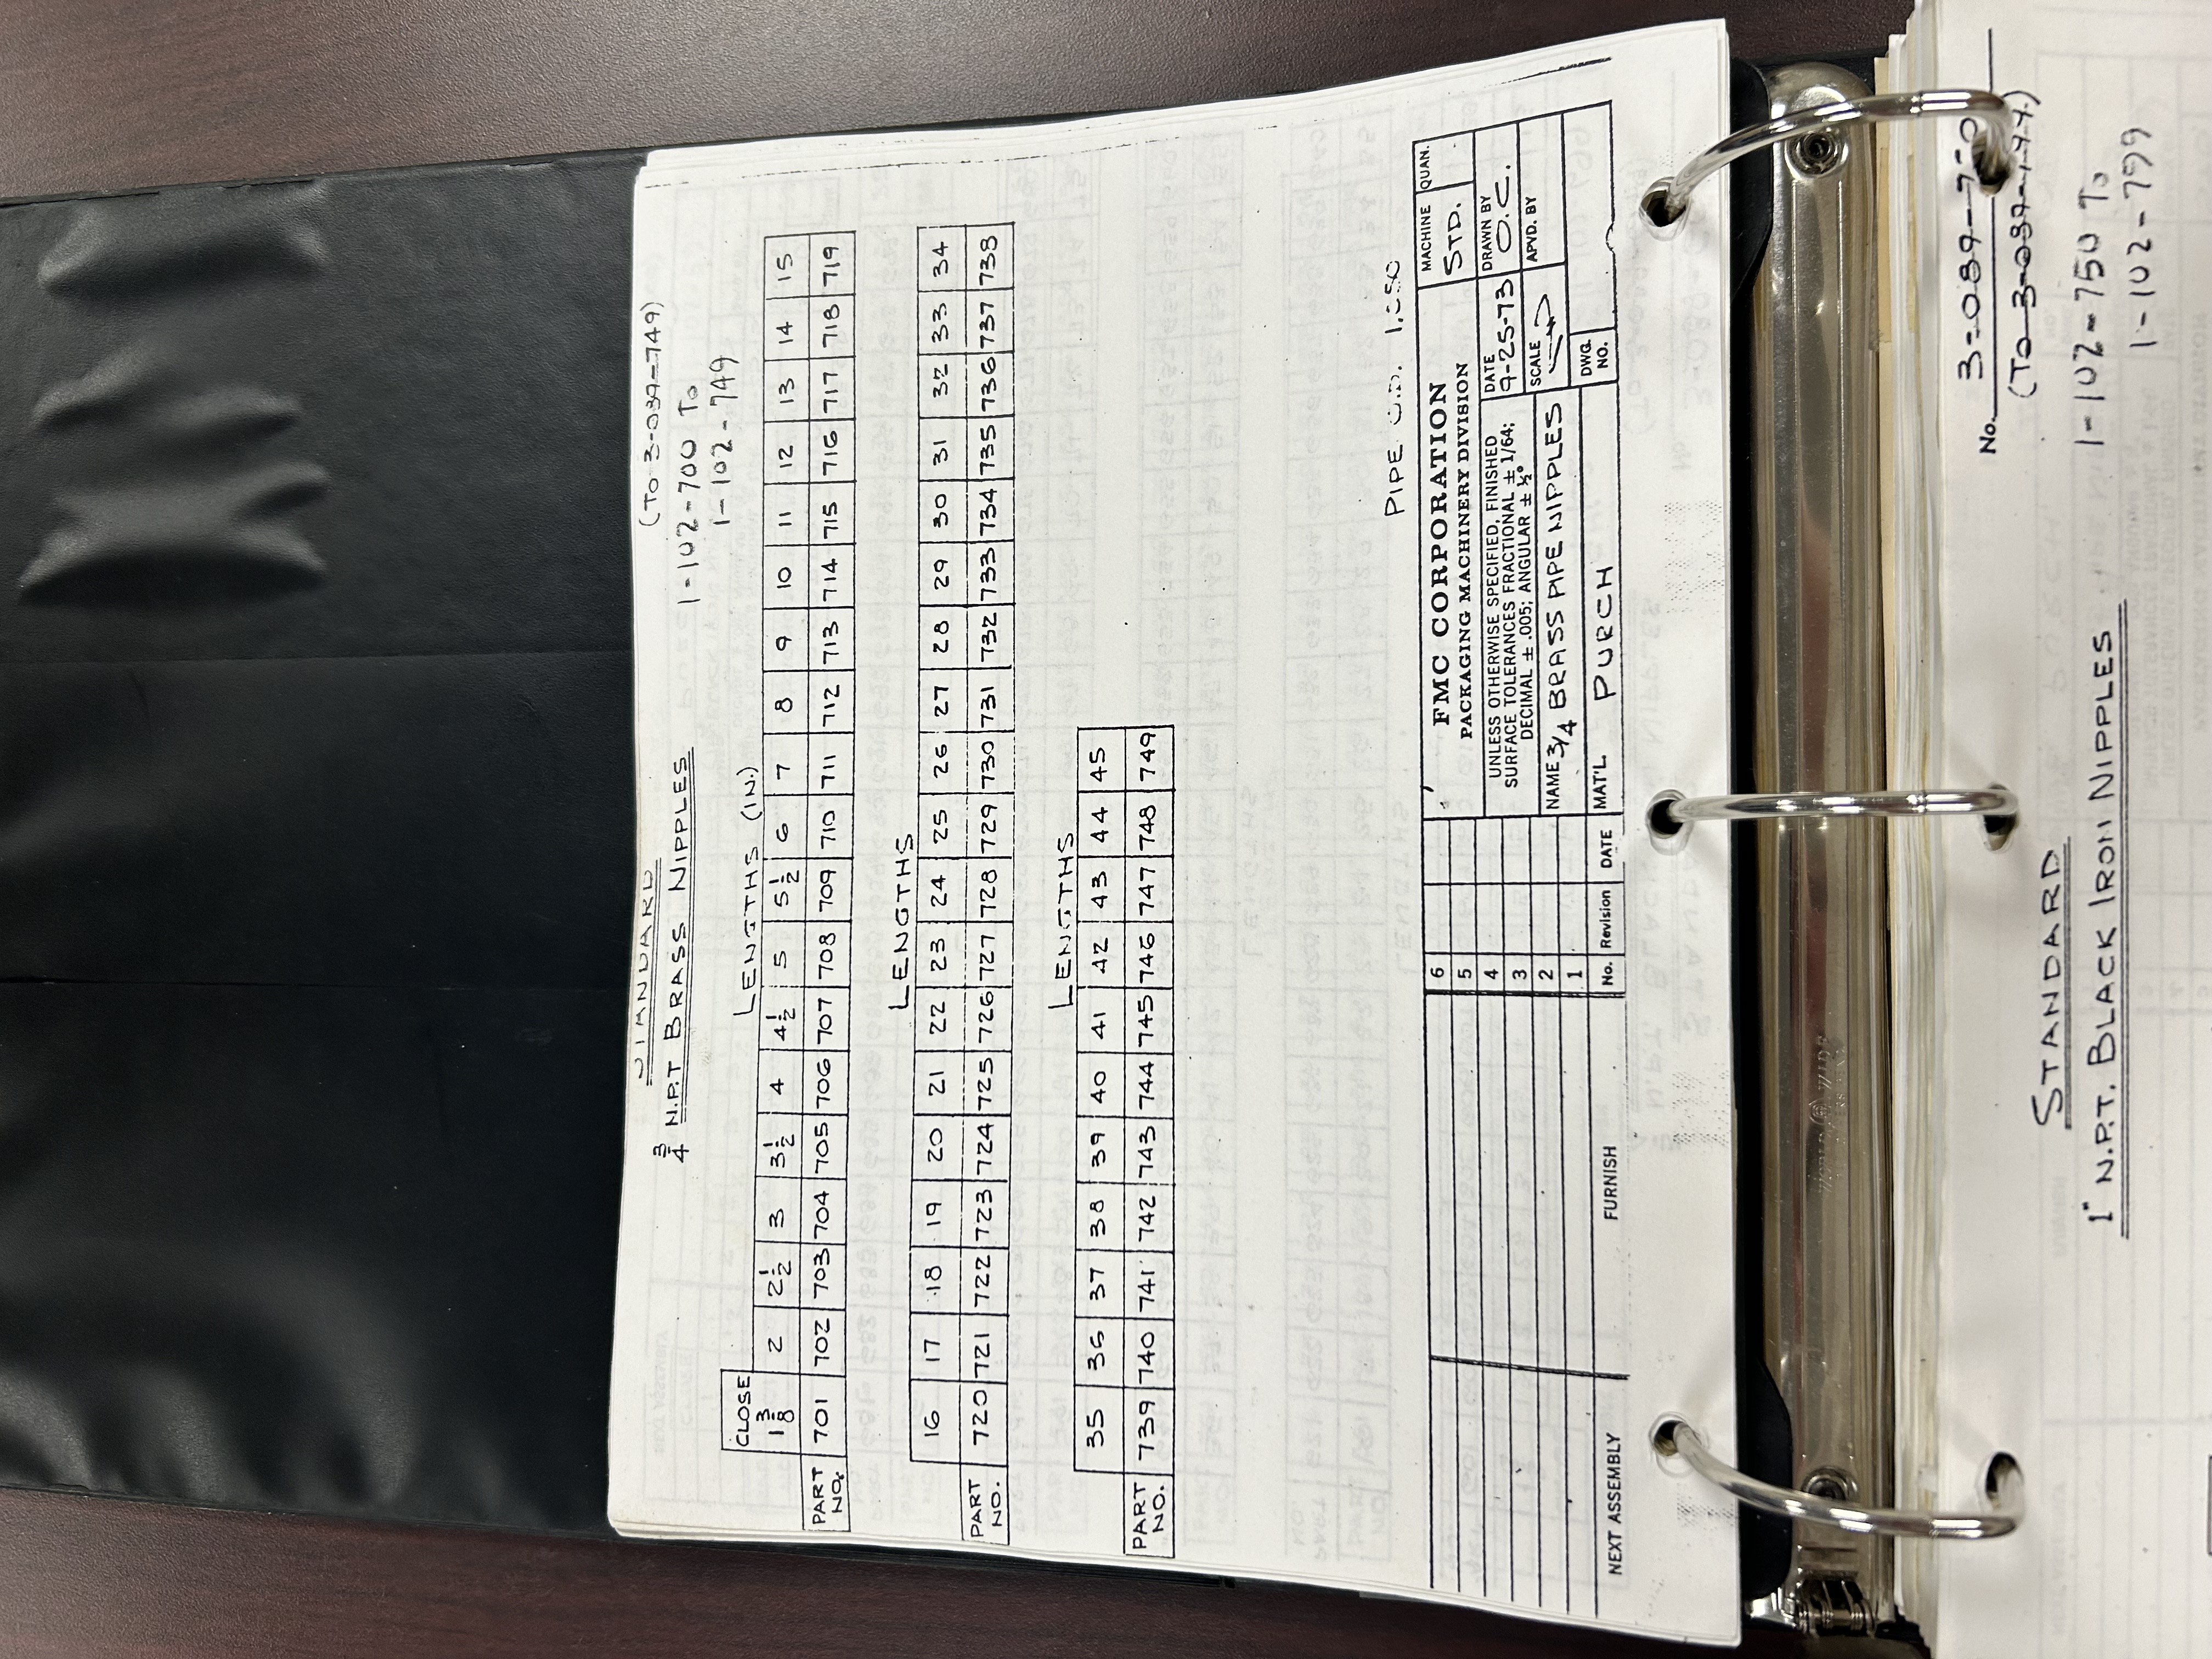 STANDARD
3/4 N.P.T BRASS NIPPLES
(TO 3-039-749)
1-102-700 TO
1-102-749
LENGTHS (IN.)
CLOSE
1 3/8 2 2 1/2 3 3 1/2 4 4 1/2 5 5 1/2 6 7 8 9 10 11 12 13 14 15
PART NO. 701 702 703 704 705 706 707 708 709 710 711 712 713 714 715 716 717 718 719
LENGTHS
16 17 18 19 20 21 22 23 24 25 26 27 28 29 30 31 32 33 34
PART NO. 720 721 722 723 724 725 726 727 728 729 730 731 732 733 734 735 736 737 738
LENGTHS
35 36 37 38 39 40 41 42 43 44 45
PART NO. 739 740 741 742 743 744 745 746 747 748 749
PIPE O.D.
NEXT ASSEMBLY
FURNISH
6
5
4
3
2
1
No. Revision DATE
FMC CORPORATION
PACKAGING MACHINERY DIVISION
MACHINE
STD.
QUAN.
UNLESS OTHERWISE SPECIFIED, FINISHED
SURFACE TOLERANCES FRACTIONAL ± 1/64;
DECIMAL ± .005; ANGULAR ± ½°
DATE
9-25-73
DRAWN BY
O.C.
NAME 3/4 BRASS PIPE NIPPLES
SCALE
APVD. BY
MAT'L. PURCH
DWG. NO.
WORLD WIDE
No. 3-089-750
(TO
STANDARD
1" N.P.T. BLACK IRON NIPPLES
1-102-750 TO
1-102-799